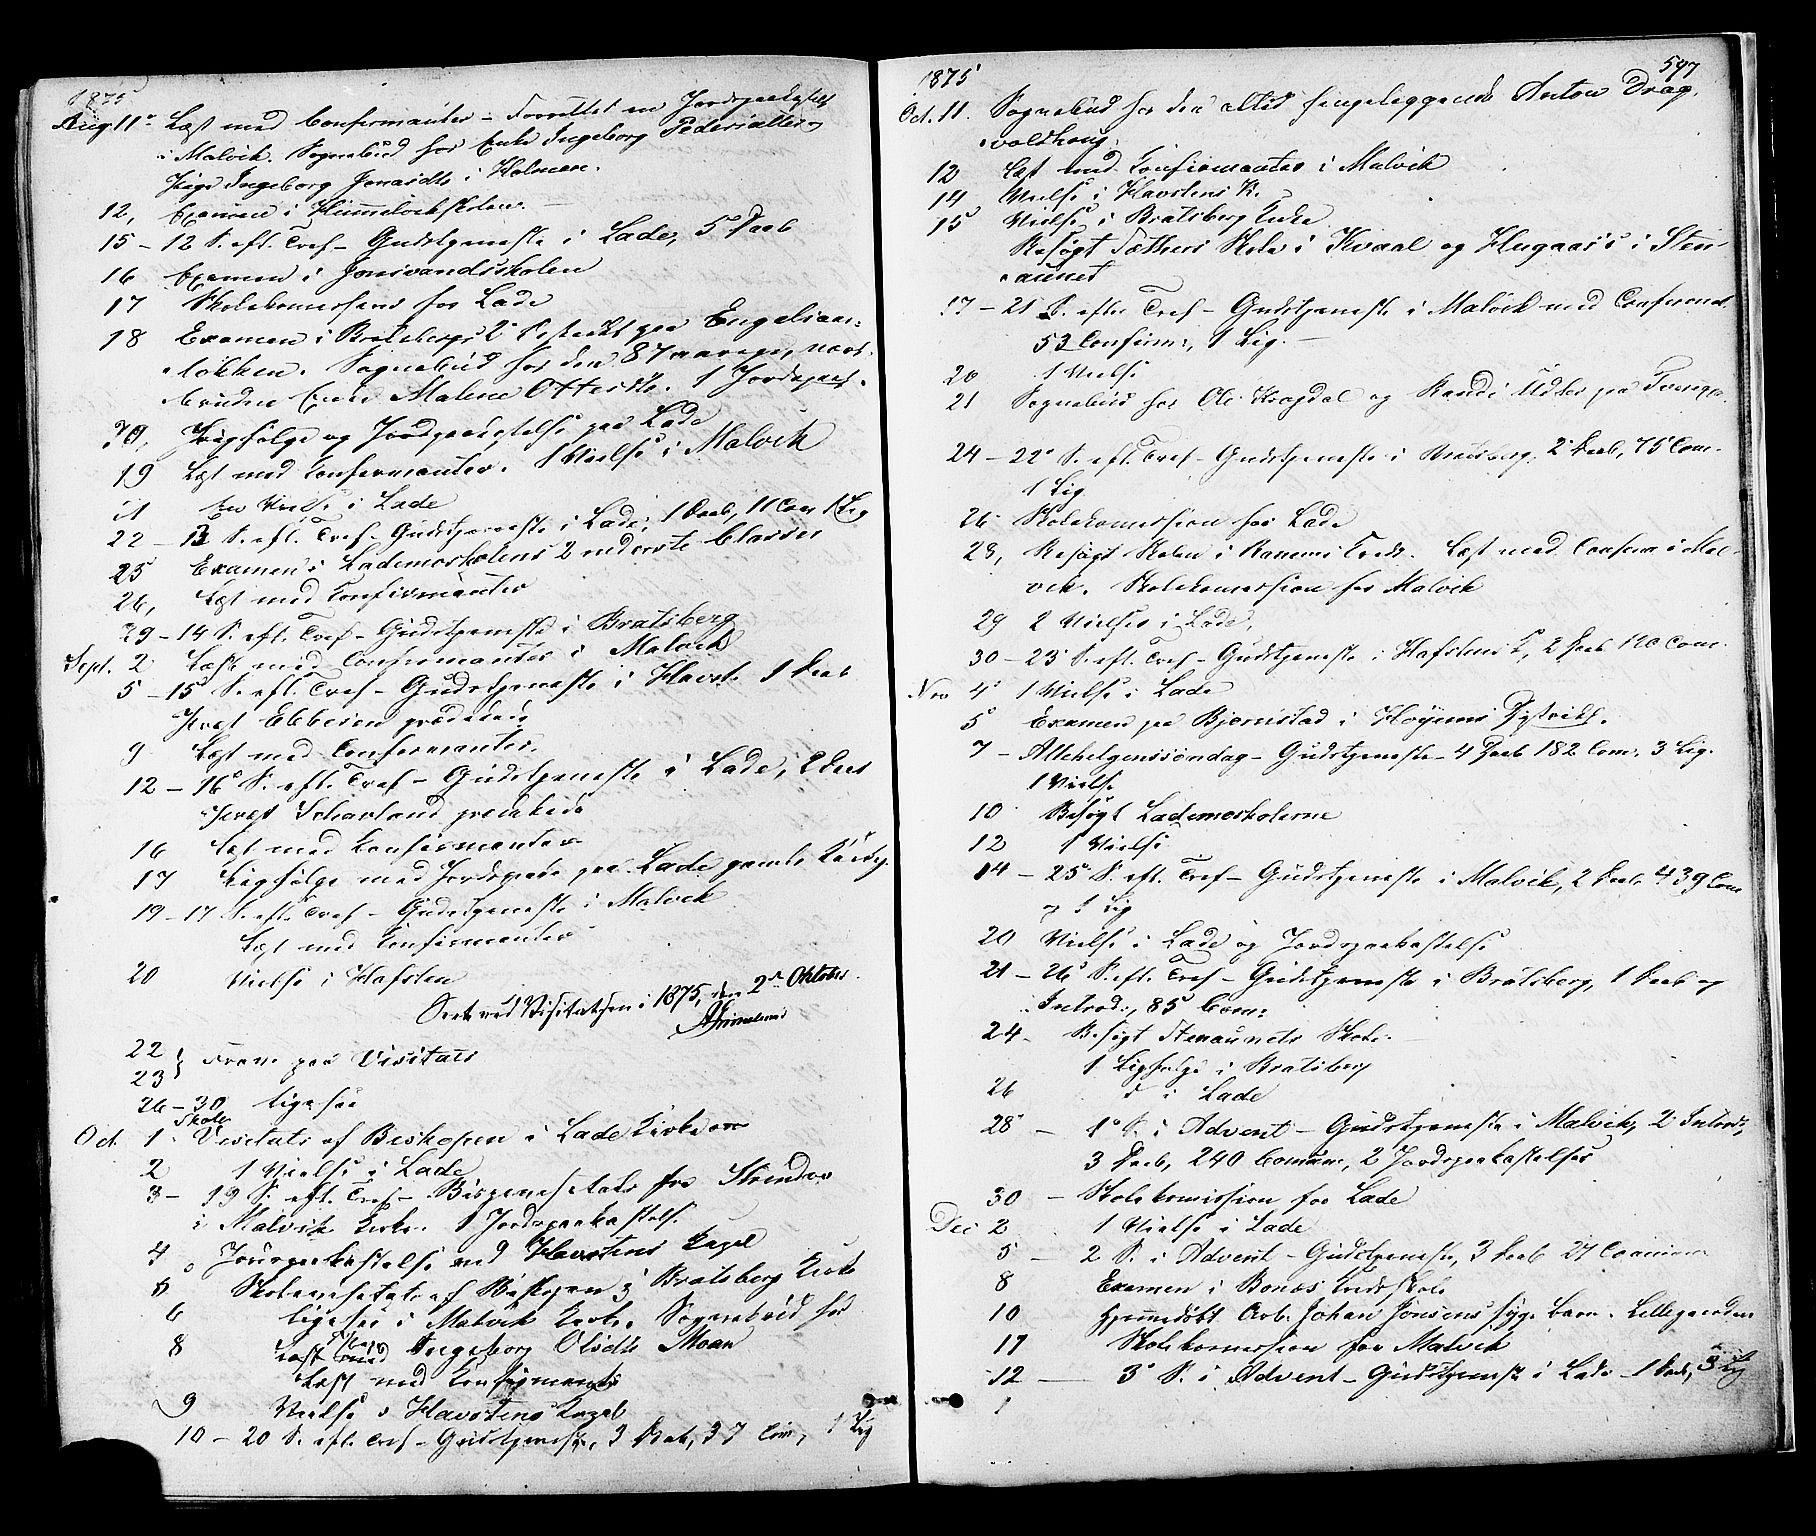 1875
Aug. 11. Læst med Confirmanter – Forrettet en Jordpaakastelse
i Malvik. Sognebud hos Enke Ingeborg
Pige Ingeborg Jonasdtr i Holmen.
12, Examen i Himmelvikskolen.
15 – 12 S. eft. Tref – Gudstjeneste i Lade, 5 Daab
16 Examen i Jonsvandsskolen
17 Skolekomission for Lade
18 Examen i Bratsbergs 2 Distrikt paa Engelsaas-
løkken. Sognebud hos den 87 aarige,
Malene Ottesdtr. 1 Jordpaak.
Ligfølge og Jordpaakastelse paa Lade
19 Læst med Konfirmanter. 1 Vielse i Malvik
21 En Vielse i Lade
22 – 13 S. eft. Tref – Gudstjeneste i Lade, 1 Daab, 11 Com 1 Lig
25 Examen i Lademoskolens 2 nederste Classer
26, Læst med Konfirmanter
29 – 14 S. eft. Tref – Gudstjeneste i Bratsberg
Sept. 2 Læst med Confirmanter i Malvik
5 – 15 S. eft. Tref – Gudstjeneste i Havst. 1 Daab
Præst Ebbesen prædikede
9 Læst med Confirmanter.
12 – 16 S. eft. Tref – Gudstjeneste i Lade,
Præst Scharland prædikede
16 Læst med Konfirmanter
17 Ligfølge med Jordpaak. paa Lade gamle Kirkeg.
19 – 17 S. eft. Tref – Gudstjeneste i Malvik
Læst med Konfirmanter
20 Vielse i Hafsten
Seet ved Visitatsen i 1875, den 2den Oktober.
AGrimelund
22
23 } Prøve paa Visitats
26 – 30 Ligesaa
Oct. 1 Skole Visitats af Biskopen i Lade Kirke
2 1 Vielse i Lade
3 – 19 S. eft. Tref – Bispevisitats fra Strinden
i Malvik Kirke. 1 Jordpaakastelse
4 Jordpaakastelse ved Havstens Kapel
5 Skolevisitats af Biskopen i Bratsberg Kirke
6 Ligesaa i Malvik Kirke. Sognebud hos
Ingeborg Olsdtr Moan
8 Læst med Konfirmanter
9 Vielse i Havstens Kapel
10 – 20 S. eft. Tref – Gudstjeneste, 3 Daab, 37 Com, 1 Lig
1875 597
Oct. 11. Sognebud hos den altid sengeliggende Anton Drag-
voldhaug.
12 Læst med Konfirmanter i Malvik
14 Vielse i Havstens K.
15 Vielse i Bratsberg Kirke
Besøgt Tæthus Skole i Kvaal og Hugaas's i Sten-
aunet
17 – 21 S. efter Tref – Gudstjeneste i Malvik med Confirmat
53 Confirm:, 1 Lig. –
20 1 Vielse
21 Sognebud hos Ole Krogdal og Randi paa
24 – 22 S. eft. Tref – Gudstjeneste i Bratsberg, 2 Daab, 75 Com.
1 Lig
26 Skolekomission for Lade
28, Besøgt Skolen i Kreds. Læst med Confirm i Mal-
vik. Skolekomission for Malvik
29 2 Vielser i Lade,
30 – 23 S. eft. Tref – Gudstjeneste i Hafstens K, 2 Daab 120 Com.
Nov 4 1 Vielse i Lade
5 Examen paa Bjørnstad i Høyems Distrikt.
7 – Allehelgenssøndag – Gudstjeneste – 4 Daab 182 Com: 3 Lig.
1 Vielse
10 Besøgt Lademoskolerne
12 1 Vielse
14 – 25 S. eft. Tref – Gudstjeneste i Malvik, 2 Daab 439 Com
og 1 Lig
20 Vielse i Lade og Jordpaakastelse
21 – 26 S. eft. Tref – Gudstjeneste i Bratsberg, 1 Daab og
Introd:, 85 Com:
24 – Besøgt Stenaunets Skole –
1 Ligfølge i Bratsberg
26 d i Lade
28 – 1 S. i Advent – Gudstjeneste i Malvik, 2 Introd:,
3 Daab, 240 Comun, 2 Jordpaakastelser
30 – Skolekomission for Lade
Dec 2 1 Vielse i Lade
5 – 2 S. i Advent – Gudstjeneste, 3 Daab 27 Comun
8 Examen i Bonæs Kredsskole
10 Hjemmedøbt Arb. Johan Jonsens syge Barn. Lillegaarden
11 Skolekomission for Malvik
12 – 3 S. i Advent – Gudstjeneste i Lade 1 Daab, 3 Lig